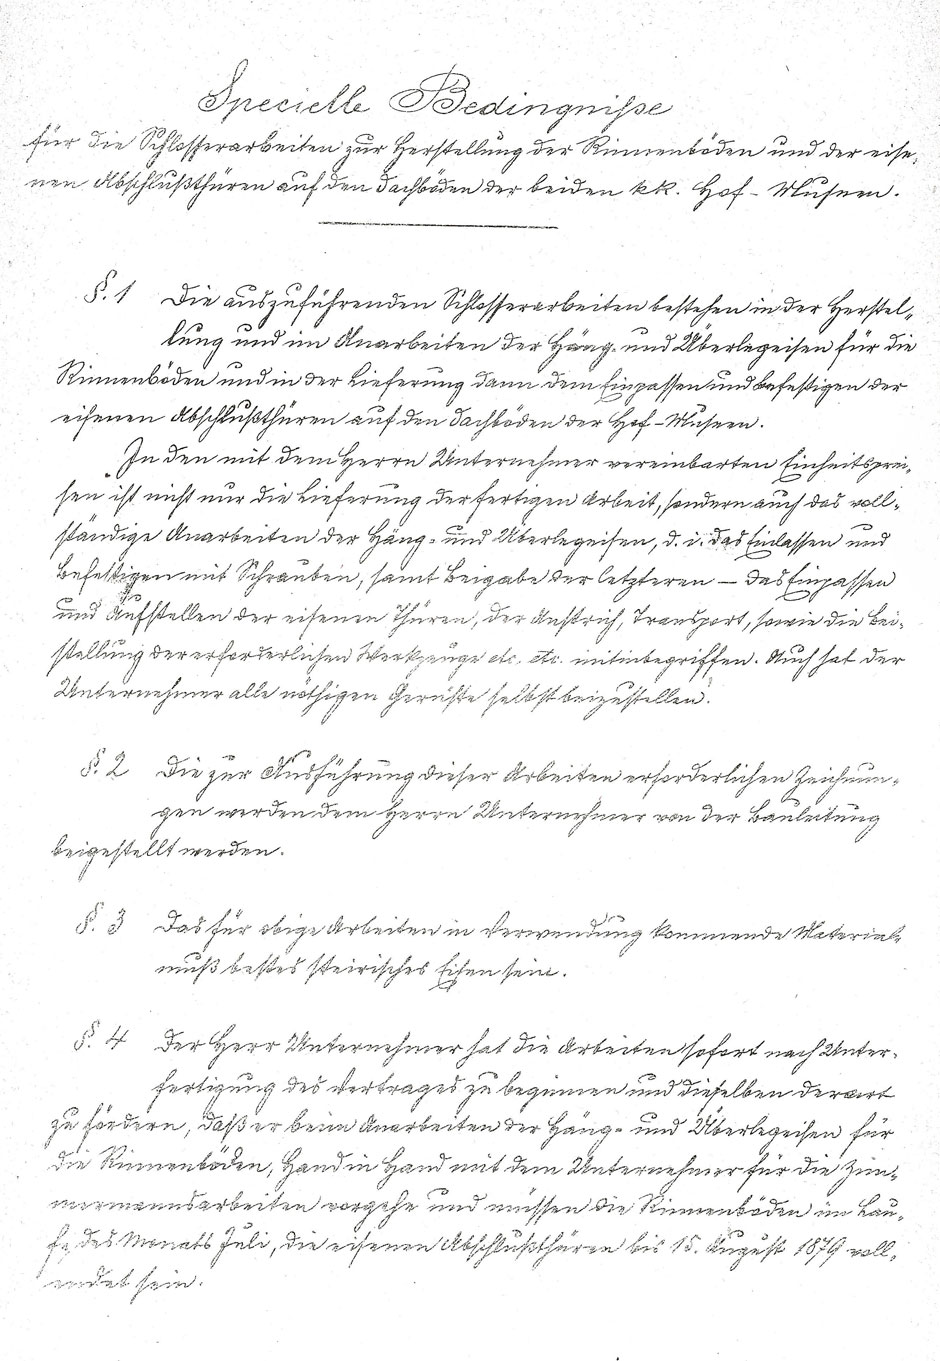 Specielle Bedingniße
für die Schlosserarbeiten zur Herstellung der Rinnenböden und der eise-
nen Abschlußthüren auf den Dachböden der beiden kk. Hof-Museen.
§. 1 Die auszuführenden Schlosserarbeiten bestehen in der Herstel-
lung und im Anarbeiten der Häng- und Überlegeisen für die
Rinnenböden und in der Lieferung dann dem Einpassen und Befestigen der
eisenen Abschlußthüren auf den Dachböden der Hof-Museen.
In den mit dem Herrn Unternehmer vereinbarten Einheitsprei-
sen ist nicht nur die Lieferung der fertigen Arbeit, sondern auch das voll-
ständige Anarbeiten der Häng- und Überlegeisen, d. i. das Einlassen und
Befestigen mit Schrauben, samt Beigabe der letzteren – das Einpassen
und Aufstellen der eisenen Thüren, der Anstrich, Transport, sowie die Bei-
stellung der erforderlichen Werkzeuge etc. etc. mitinbegriffen. Auch hat der
Unternehmer alle nöthigen Gerüste selbst beizustellen.
§. 2 Die zur Ausführung dieser Arbeiten erforderlichen Zeichnun-
gen werden dem Herrn Unternehmer von der Bauleitung
beigestellt werden.
§. 3 Das für obige Arbeiten in Verwendung kommende Material
muß bestes steirisches Eisen sein.
§. 4 Der Herr Unternehmer hat die Arbeiten sofort nach Unter-
fertigung des Vertrages zu beginnen und dieselben derart
zu fördern, daß er beim Anarbeiten der Häng- und Überlegeisen für
die Rinnenböden, Hand in Hand mit dem Unternehmer für die Zim-
mermannsarbeiten vorgehe und müssen die Rinnenböden im Lau-
fe des Monats Juli, die eisenen Abschlußthüren bis 15. August 1879 voll-
endet sein.